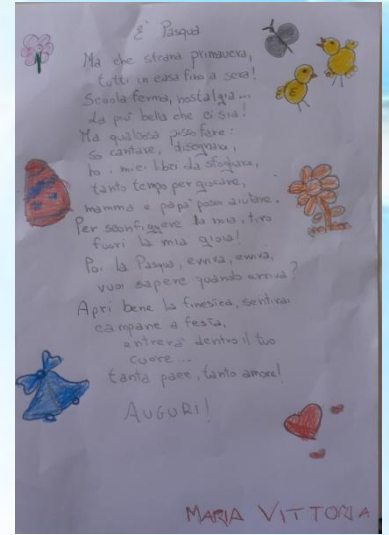 E' Pasqua
Ma che strana primavera,
tutti in casa fino a sera!
Scuola ferma, nostalgia...
La più bella che ci sia!
Ma qualcosa posso fare:
so cantare, disegnare,
ho i miei libri da sfogliare,
tanto tempo per giocare,
mamma e papà posso aiutare.
Per sconfiggere la noia, tiro
fuori la mia gioia!
Poi la Pasqua, evviva, evviva,
vuoi sapere quando arriva?
Apri bene la finestra, sentirai
campane a festa,
entrerà dentro il tuo
cuore...
tanta pace, tanto amore!
AUGURI!
MARIA VITTORIA